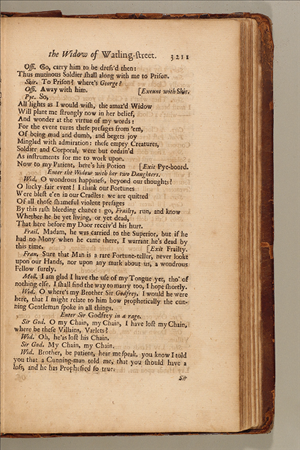 the Widow of Watling-street. 3211
Off. Go, carry him to be dress'd then:
Thus mutinous Soldier shall along with me to Prison.
Skir. To Prison? where's George?
Off. Away with him. [Exeunt with Skir.
Pye. So,
All lights as I would wish, the amaz'd Widow
Will plant me strongly now in her belief,
And wonder at the virtue of my words:
For the event turns these presages from 'em,
Of being mad and dumb, and begets joy
Mingled with admiration: these empty Creatures,
Soldier and Corporal, were but ordain'd
As instruments for me to work upon.
Now to my Patient, here's his Potion [Exit Pye-board.
Enter the Widow with her two Daughters.
Wid. O wondrous happiness, beyond our thoughts!
O lucky fair event! I think our Fortunes
Were blest e'en in our Cradles: we are quitted
Of all those shameful violent presages
By this rash bleeding chance: go, Frailty, run, and know
Whether he be yet living, or yet dead,
That here before my Door receiv'd his hurt.
Frail. Madam, he was carried to the Superior, but if he
had no Mony when he came there, I warrant he's dead by
this time. [Exit Frailty.
Fran. Sure that Man is a rare Fortune-teller, never lookt
upon our Hands, nor upon any mark about us, a wondrous
Fellow surely.
Moll. I am glad I have the use of my Tongue yet, tho' of
nothing else. I shall find the way to marry too, I hope shortly.
Wid. O where's my Brother Sir Godfrey, I would he were
here, that I might relate to him how prophetically the cun-
ning Gentleman spoke in all things.
Enter Sir Godfrey in a rage.
Sir God. O my Chain, my Chain, I have lost my Chain,
where be these Villains, Varlets?
Wid. Oh, he's lost his Chain.
Sir God. My Chain, my Chain.
Wid. Brother, be patient, hear me speak, you know I told
you that a Cunning-man told me, that you should have a
loss, and he has Prophesied so true.